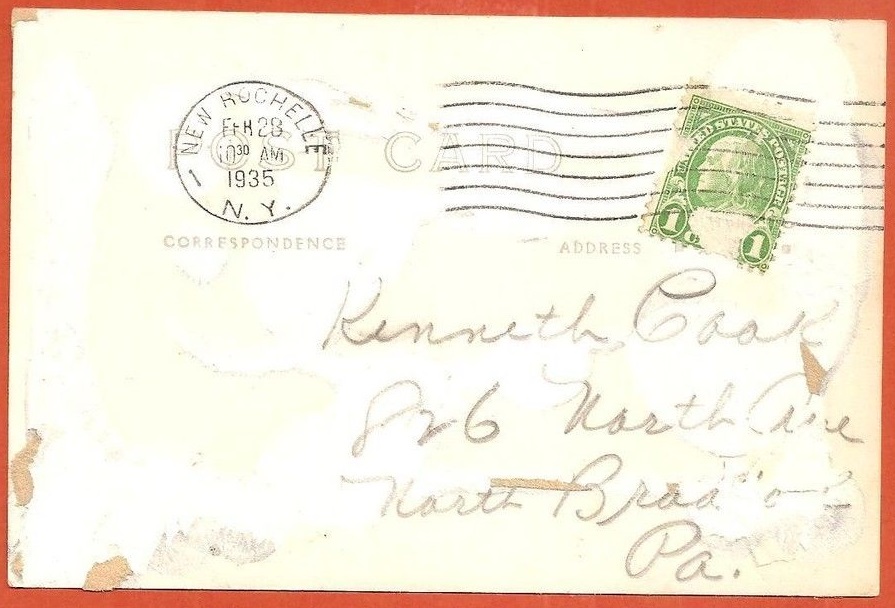 NEW ROCHELLE
1
FEB 28
10 30 AM
1935
N. Y.
POST CARD
UNITED STATES POSTAGE
1 1
CORRESPONDENCE
ADDRESS
Kenneth Cook
826 North Ave
North
Pa.